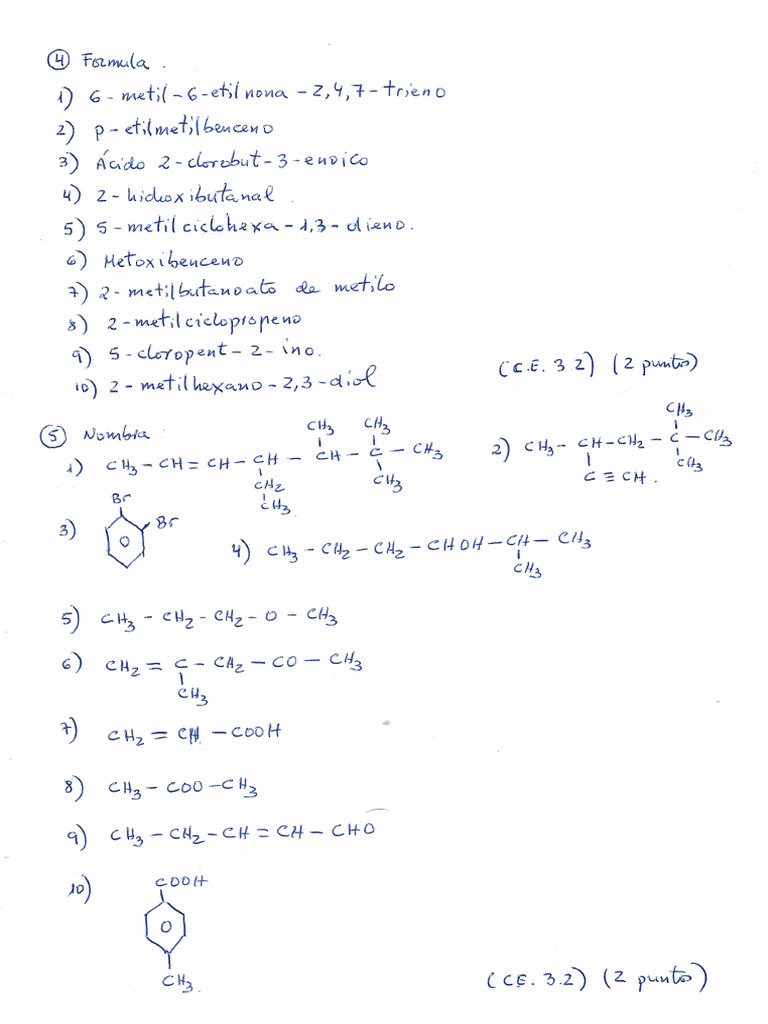 ④ Formula.
1) 6-metil-6-etilnona-2,4,7-trieno
2) p-etilmetilbenceno
3) Ácido 2-clorobut-3-enoico
4) 2-hidroxibutanal
5) 5-metilciclohexa-1,3-dieno.
6) Metoxibenceno
7) 2-metilbutanoato de metilo
8) 2-metilciclopropeno
9) 5-cloropent-2-ino.
10) 2-metilhexano-2,3-diol
(C.E. 3.2) (2 puntos)
⑤ Nombra:
CH3 CH3
1) CH3-CH=CH-CH-CH-C-CH3
CH2 CH3
CH3
CH3
2) CH3-CH-CH2-C-CH3
C≡CH. CH3
Br
3) Br
4) CH3-CH2-CH2-CHOH-CH-CH3
CH3
5) CH3-CH2-CH2-O-CH3
6) CH2=C-CH2-CO-CH3
CH3
7) CH2=CH-COOH
8) CH3-COO-CH3
9) CH3-CH2-CH=CH-CHO
10) COOH
CH3.
(CE. 3.2) (2 puntos)